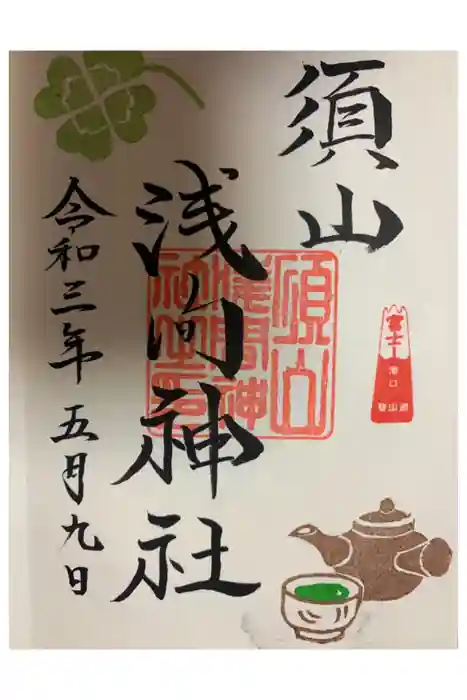 須山
浅間神社
令和三年 五月九日
須山
浅間神
社之印
富士山
須山口
登山道